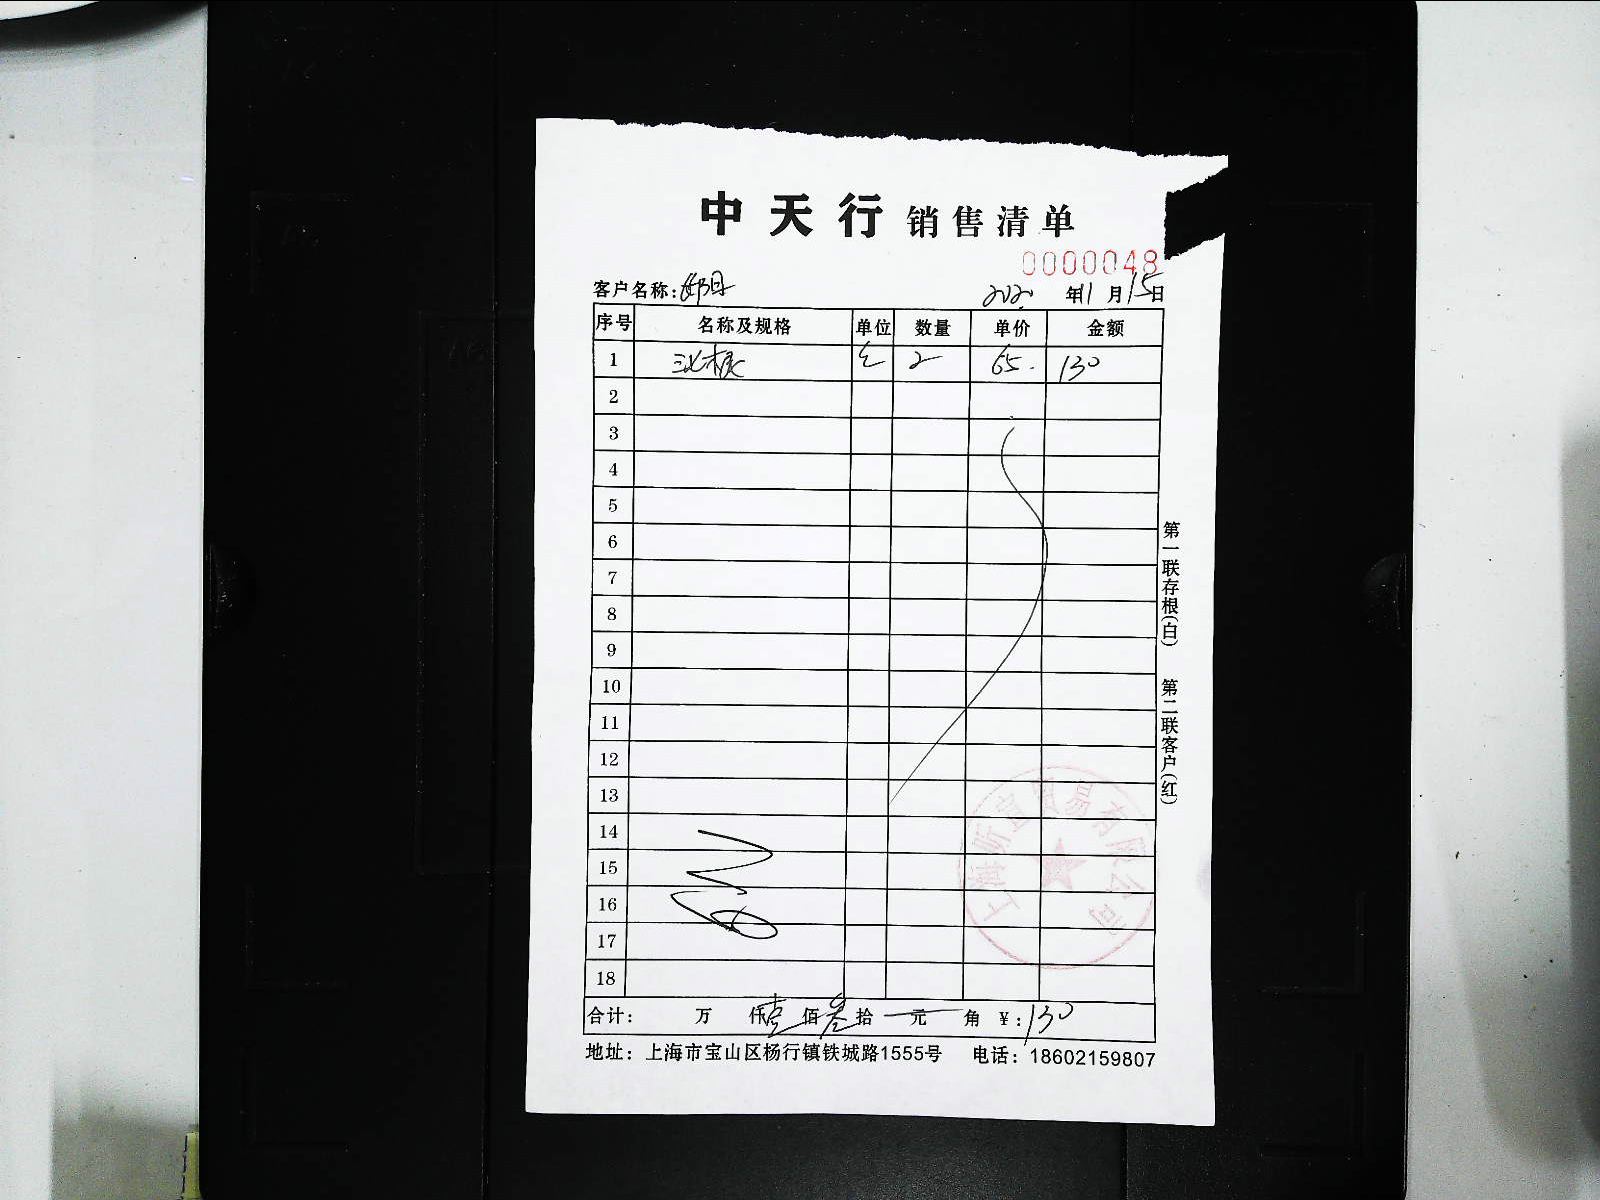 中天行 销售清单
0000048
客户名称: 2020 年11月15日
序号 名称及规格 单位 数量 单价 金额
1 2 65. 130
2
3
4
5
6
7
8
9
10
11
12
13
14
15
16
17
18
上海昕宜贸易有限公司
合计: 万 仟壹佰叁拾 元 角 ¥:130
地址:上海市宝山区杨行镇铁城路1555号 电话:18602159807
第一联存根(白) 第二联客户(红)